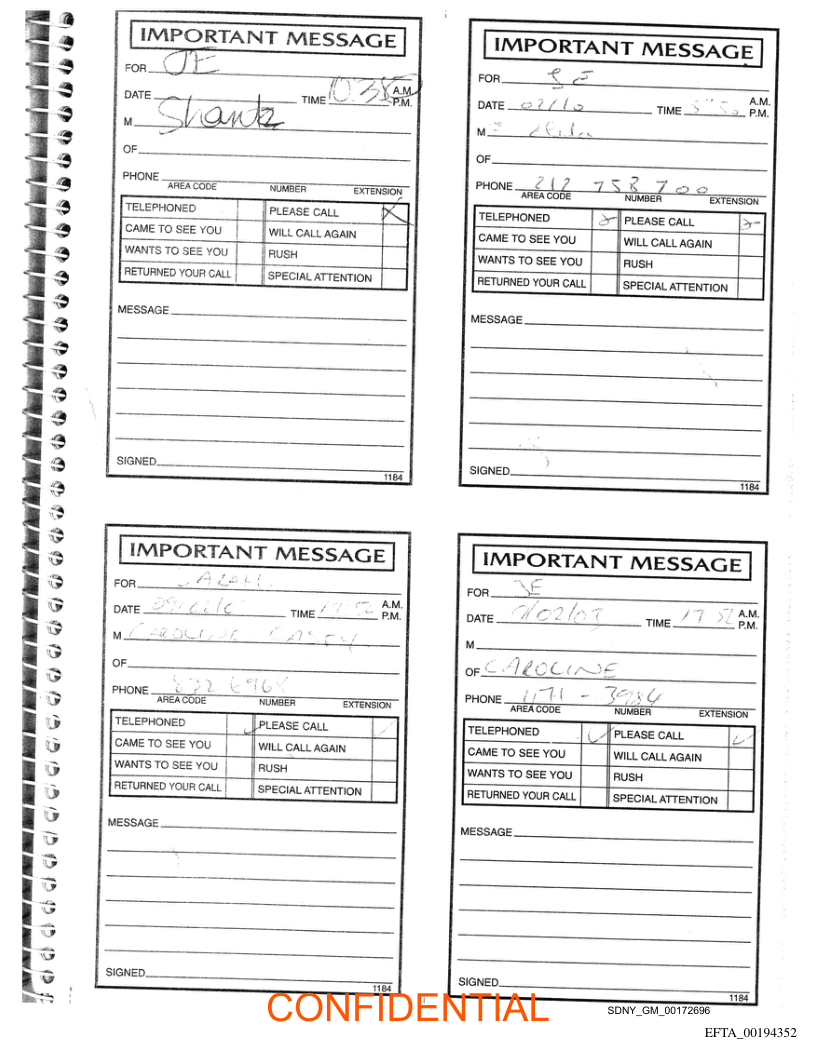 IMPORTANT MESSAGE
FOR JE
DATE TIME 10:38 A.M. P.M.
M Shantz
OF
PHONE
AREA CODE NUMBER EXTENSION
TELEPHONED PLEASE CALL X
CAME TO SEE YOU WILL CALL AGAIN
WANTS TO SEE YOU RUSH
RETURNED YOUR CALL SPECIAL ATTENTION
MESSAGE
SIGNED
1184
IMPORTANT MESSAGE
FOR JE
DATE 02/10 TIME A.M. P.M.
M
OF
PHONE 212 758 700
AREA CODE NUMBER EXTENSION
TELEPHONED X PLEASE CALL X
CAME TO SEE YOU WILL CALL AGAIN
WANTS TO SEE YOU RUSH
RETURNED YOUR CALL SPECIAL ATTENTION
MESSAGE
SIGNED
1184
IMPORTANT MESSAGE
FOR SARAH
DATE TIME 17 52 A.M. P.M.
M CAROLINE CASEY
OF
PHONE 832 6968
AREA CODE NUMBER EXTENSION
TELEPHONED ✓ PLEASE CALL ✓
CAME TO SEE YOU WILL CALL AGAIN
WANTS TO SEE YOU RUSH
RETURNED YOUR CALL SPECIAL ATTENTION
MESSAGE
SIGNED
1184
IMPORTANT MESSAGE
FOR JE
DATE 9/02/03 TIME 17 52 A.M. P.M.
M
OF CAROLINE
PHONE 1171 - 3984
AREA CODE NUMBER EXTENSION
TELEPHONED ✓ PLEASE CALL ✓
CAME TO SEE YOU WILL CALL AGAIN
WANTS TO SEE YOU RUSH
RETURNED YOUR CALL SPECIAL ATTENTION
MESSAGE
SIGNED
1184
CONFIDENTIAL
SDNY_GM_00172696
EFTA_00194352